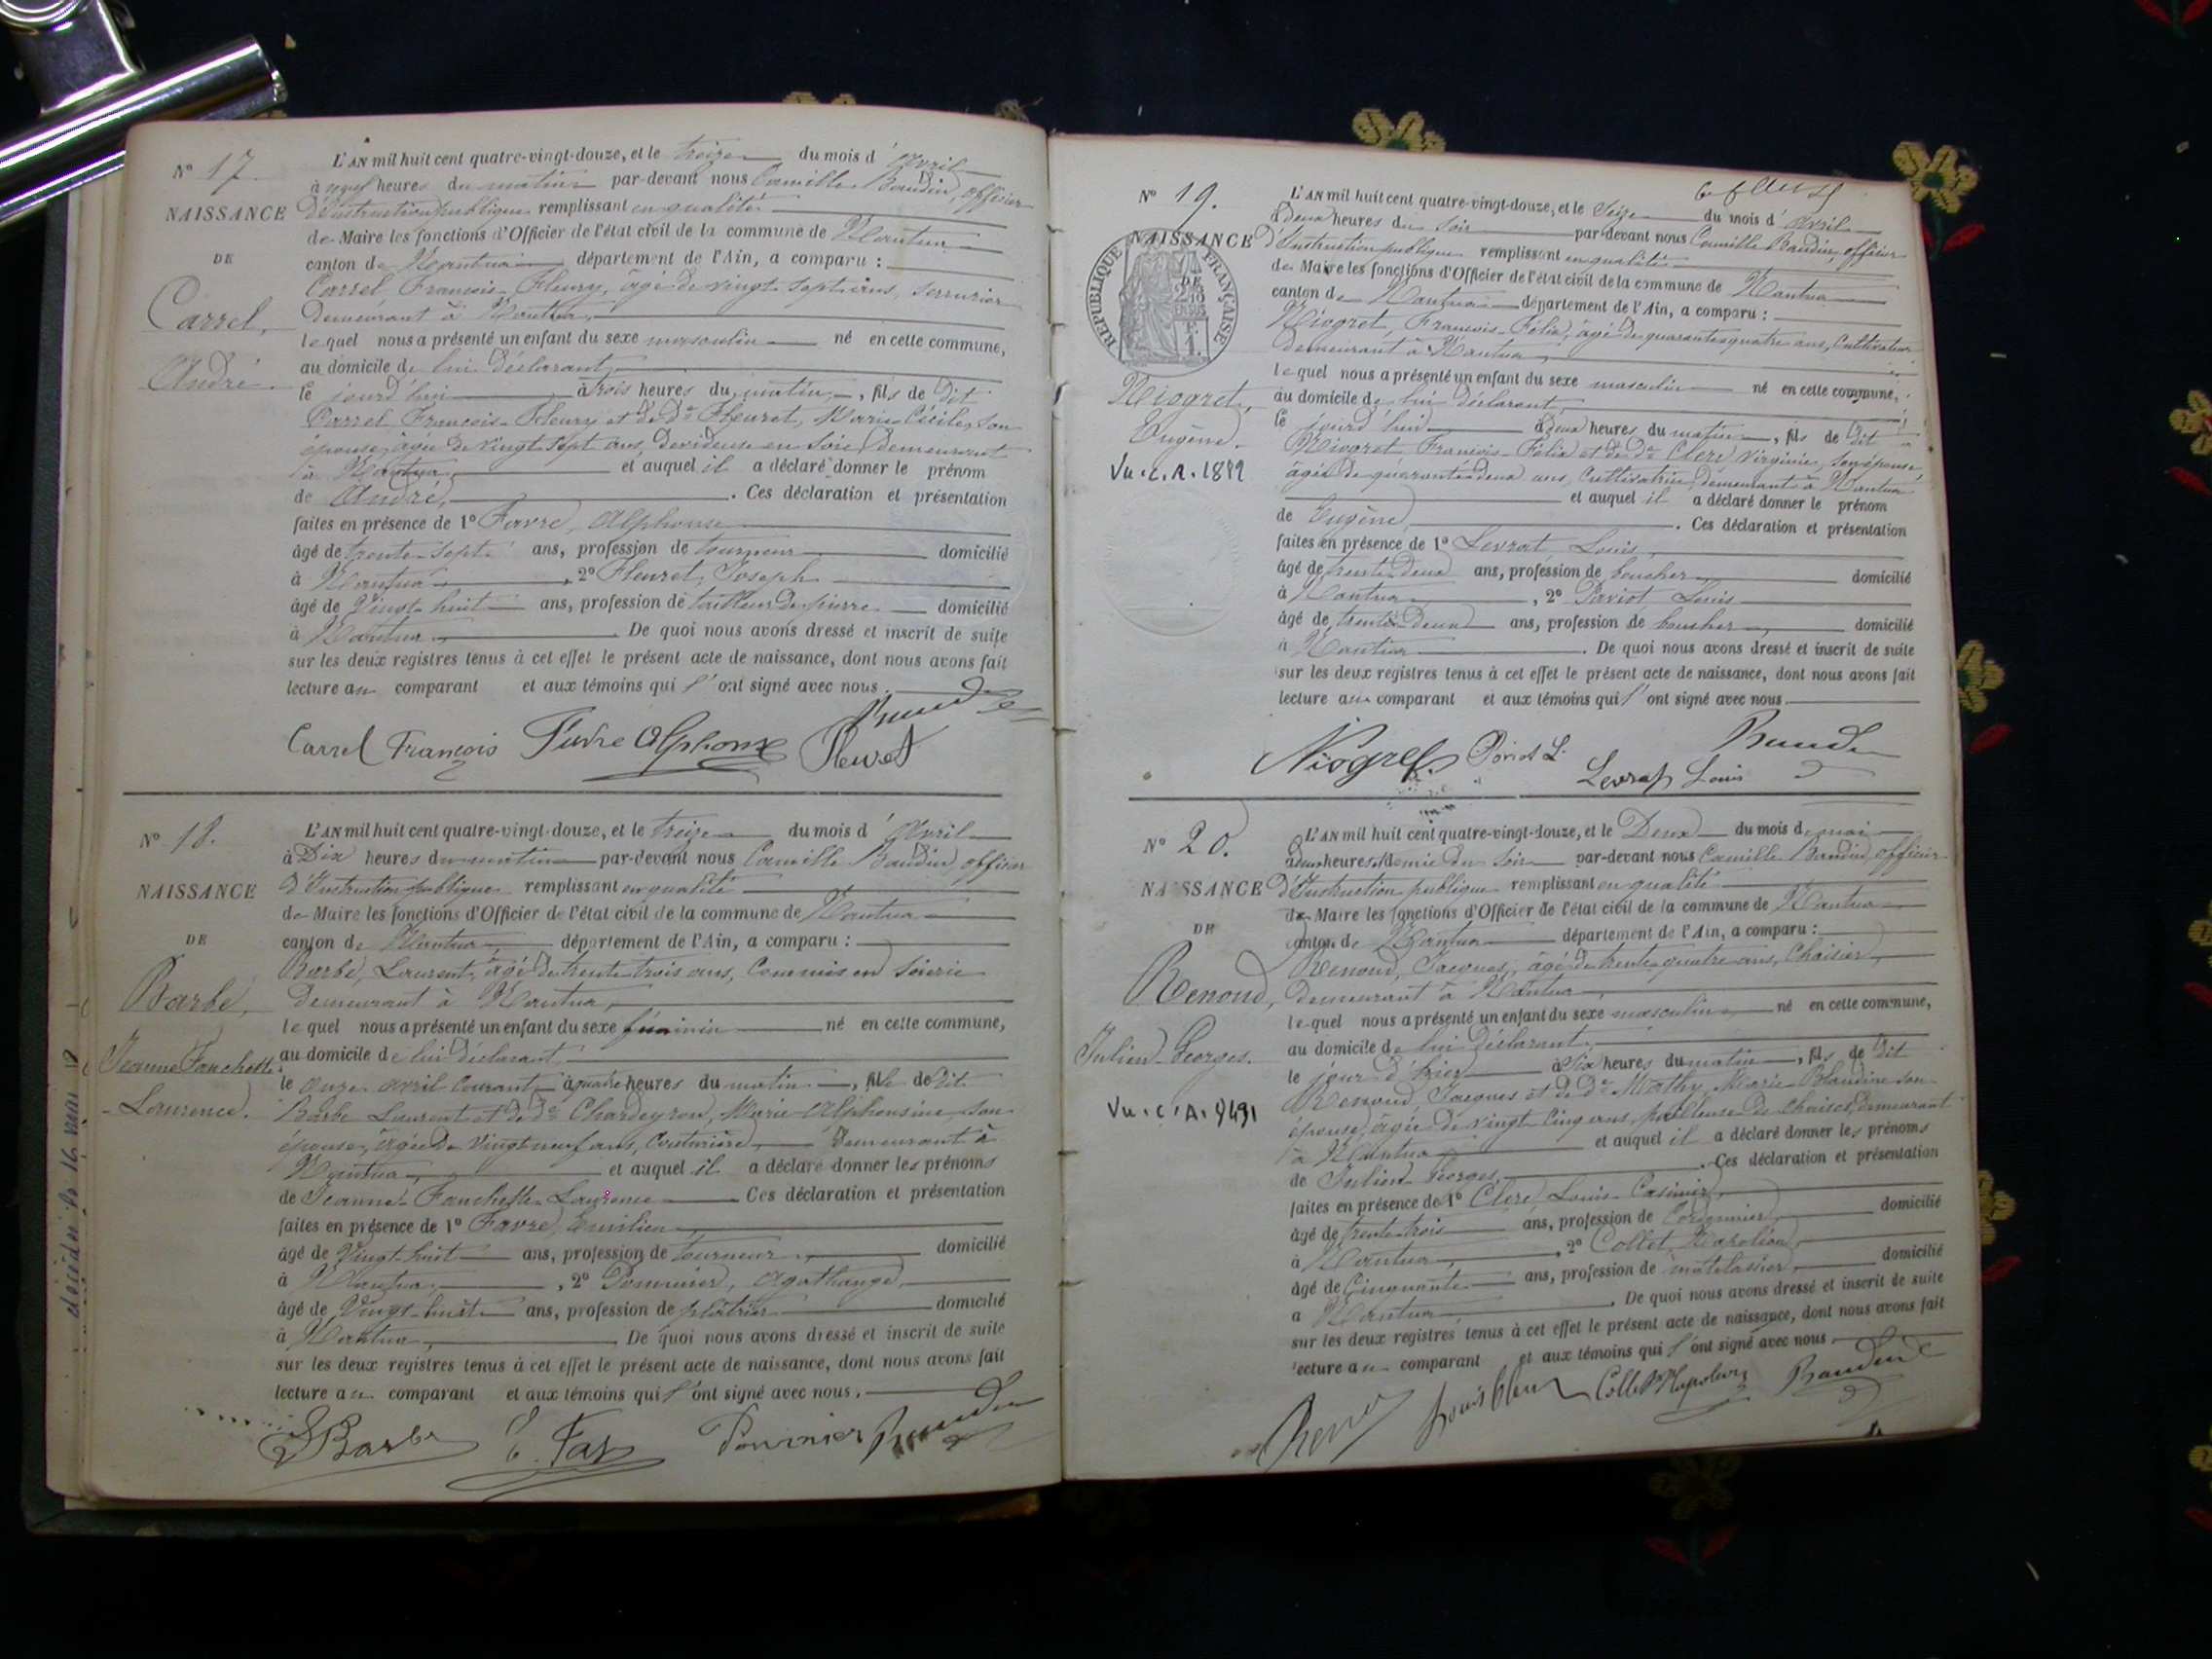 N° 17.
NAISSANCE
DE
Carrel,
André.
L'AN mil huit cent quatre-vingt-douze, et le treize du mois d'Avril
à neuf heures du matin par-devant nous Camille Baudin, officier
d'Instruction publique remplissant en qualité
de Maire les fonctions d'Officier de l'état civil de la commune de Nantua
canton de Nantua département de l'Ain, a comparu :
Carrel, François-Fleury, âgé de vingt-sept ans, serrurier
demeurant à Nantua,
lequel nous a présenté un enfant du sexe masculin né en cette commune,
au domicile de lui déclarant,
le jourd'hui à trois heures du matin, fils de dit
Carrel François-Fleury et de De Fleuret, Marie Cécile, son
épouse, âgée de vingt-sept ans, devideuse en soie, demeurant
à Nantua, et auquel il a déclaré donner le prénom
de André, . Ces déclaration et présentation
faites en présence de 1° Favre, Alphonse
âgé de trente-sept ans, profession de tourneur domicilié
à Nantua , 2° Fleuret, Joseph
âgé de vingt-huit ans, profession de tailleur de pierre domicilié
à Nantua . De quoi nous avons dressé et inscrit de suite
sur les deux registres tenus à cet effet le présent acte de naissance, dont nous avons fait
lecture au comparant et aux témoins qui l'ont signé avec nous.
Carrel François Favre Alphonse Fleuret Baudin
N° 18.
NAISSANCE
DE
Barbe,
Jeanne Fanchette
Laurence.
décédée le 16 mai
L'AN mil huit cent quatre-vingt-douze, et le treize du mois d'Avril
à Dix heures du matin par-devant nous Camille Baudin, officier
d'Instruction publique remplissant en qualité
de Maire les fonctions d'Officier de l'état civil de la commune de Nantua
canton de Nantua, département de l'Ain, a comparu :
Barbe, Laurent, âgé de trente-trois ans, Commis en soierie
demeurant à Nantua,
lequel nous a présenté un enfant du sexe féminin né en cette commune,
au domicile de lui déclarant,
le onze avril courant, à quatre heures du matin, fille de dit
Barbe Laurent et de De Chardeyron, Marie-Alphonsine, son
épouse, âgée de vingt-neuf ans, Couturière, demeurant à
Nantua, et auquel il a déclaré donner les prénoms
de Jeanne-Fanchette-Laurence Ces déclaration et présentation
faites en présence de 1° Favre, Emilien
âgé de vingt-huit ans, profession de tourneur domicilié
à Nantua, , 2° Pommier, Agathange
âgé de vingt-huit ans, profession de plâtrier domicilié
à Nantua, De quoi nous avons dressé et inscrit de suite
sur les deux registres tenus à cet effet le présent acte de naissance, dont nous avons fait
lecture au comparant et aux témoins qui l'ont signé avec nous.
L Barbe E. Fav Pommier Baudin
N° 19.
NAISSANCE
DE
RÉPUBLIQUE FRANÇAISE
Niogret,
Eugène.
Vu.C.A.1892
L'AN mil huit cent quatre-vingt-douze, et le seize du mois d'avril
à deux heures du soir par-devant nous Camille Baudin, officier
d'Instruction publique remplissant en qualité
de Maire les fonctions d'Officier de l'état civil de la commune de Nantua
canton de Nantua département de l'Ain, a comparu :
Niogret, François-Félix, âgé de quarante-quatre ans, Cultivateur
demeurant à Nantua,
lequel nous a présenté un enfant du sexe masculin né en cette commune,
au domicile de lui déclarant,
le jourd'hui à deux heures du matin, fils de dit
Niogret François-Félix et de De Clerc, Virginie, son épouse,
âgée de quarante-deux ans, Cultivatrice, demeurant à Nantua
et auquel il a déclaré donner le prénom
de Eugène . Ces déclaration et présentation
faites en présence de 1° Levrat, Louis,
âgé de trente-deux ans, profession de boucher domicilié
à Nantua , 2° Pariot Louis
âgé de trente-deux ans, profession de boucher domicilié
à Nantua . De quoi nous avons dressé et inscrit de suite
sur les deux registres tenus à cet effet le présent acte de naissance, dont nous avons fait
lecture au comparant et aux témoins qui l'ont signé avec nous
Niogret Pariot L. Levrat Louis Baudin
N° 20.
NAISSANCE
DE
Renoud,
Julien-Georges.
Vu.C.A.9491
L'AN mil huit cent quatre-vingt-douze, et le Deux du mois de mai
à deux heures & demie du soir par-devant nous Camille Baudin, officier
d'Instruction publique remplissant en qualité
de Maire les fonctions d'Officier de l'état civil de la commune de Nantua
canton de Nantua département de l'Ain, a comparu :
Renoud, Jacques, âgé de trente-quatre ans, Chaisier,
demeurant à Nantua
lequel nous a présenté un enfant du sexe masculin né en cette commune,
au domicile de lui déclarant,
le jour d'hier à six heures du matin, fils de dit
Renoud, Jacques et de De Mathy, Marie-Blandine son
épouse, âgée de vingt-cinq ans, pailleuse de chaises, demeurant
à Nantua et auquel il a déclaré donner les prénoms
de Julien-Georges, . Ces déclaration et présentation
faites en présence de 1° Clerc Louis-Casimir,
âgé de trente-trois ans, profession de Cordonnier domicilié
à Nantua , 2° Collet Napoléon,
âgé de cinquante ans, profession de matelassier, domicilié
à Nantua, . De quoi nous avons dressé et inscrit de suite
sur les deux registres tenus à cet effet le présent acte de naissance, dont nous avons fait
lecture au comparant et aux témoins qui l'ont signé avec nous.
Louis Clerc Collet Napoléon Baudin